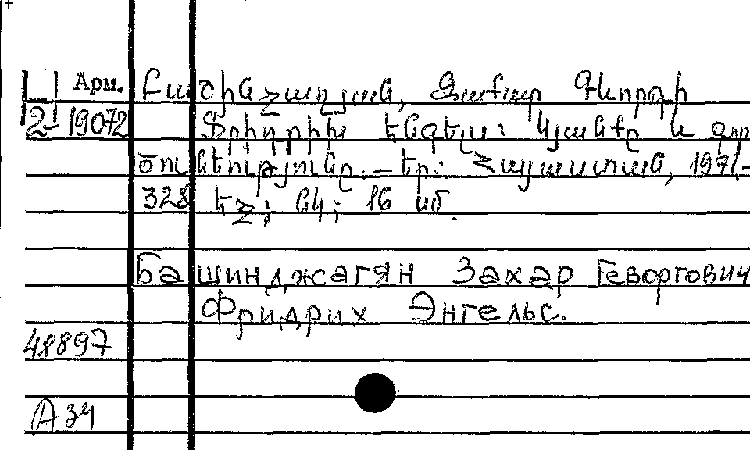 Арм. Բաշինջաղյան, Զաքար Գևորգի
2-19072 Ֆրիդրիխ Էնգելս: Կյանքը և գոր
ծունեությունը.— Եր.: Հայաստան, 1971.-
328 էջ; նկ; 16 սմ.
Башинджагян Захар Геворгович
Фридрих Энгельс.
48897
А 34